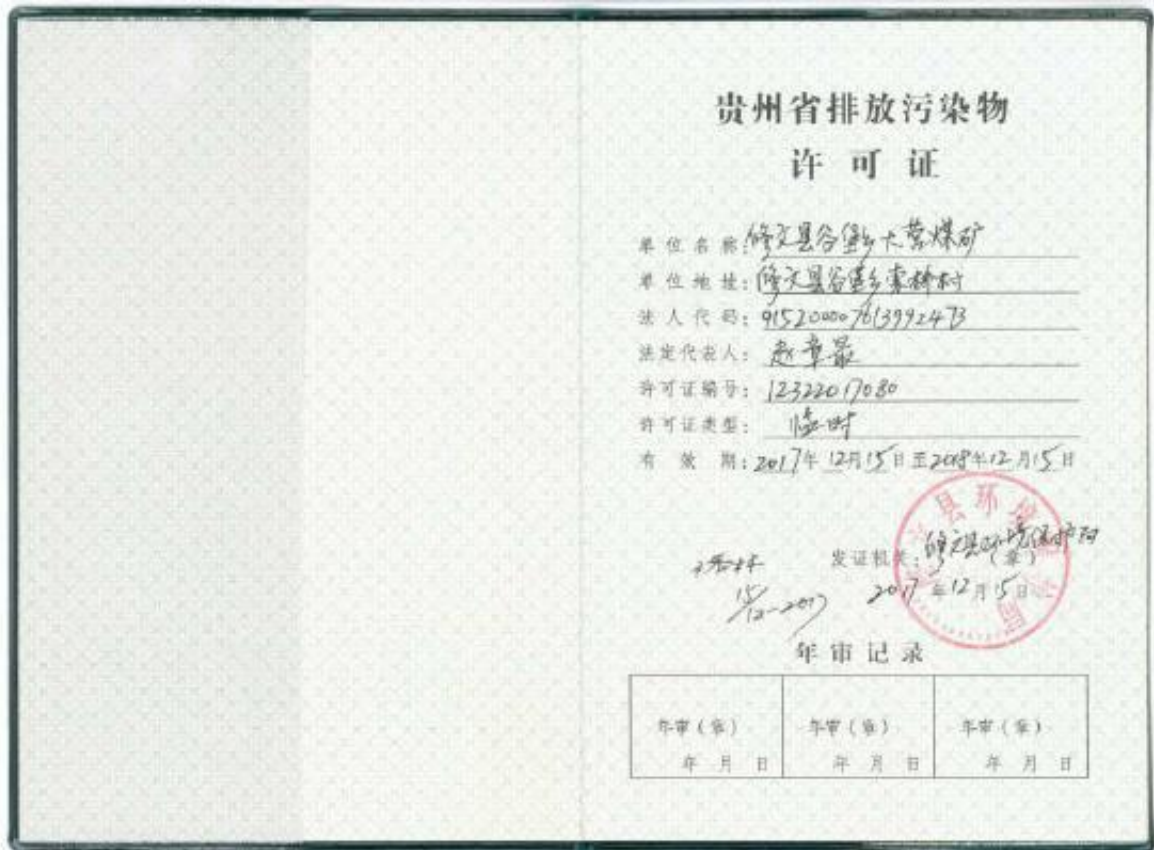 贵州省排放污染物
许可证
单位名称:修文县谷堡乡大营煤矿
单位地址:修文县谷堡乡索桥村
法人代码:915200007613992473
法定代表人:赵章最
许可证编号:12322017080
许可证类型:临时
有效期:2017年12月15日至2018年12月15日
发证机关:修文县环境保护局
(章)
15/12-2017
2017年12月15日
年审记录
年审(章) 年审(章) 年审(章)
年月日 年月日 年月日